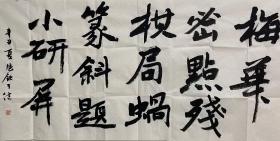 梅華
密點殘
棋局蝸
篆斜題
小研屏
辛丑夏